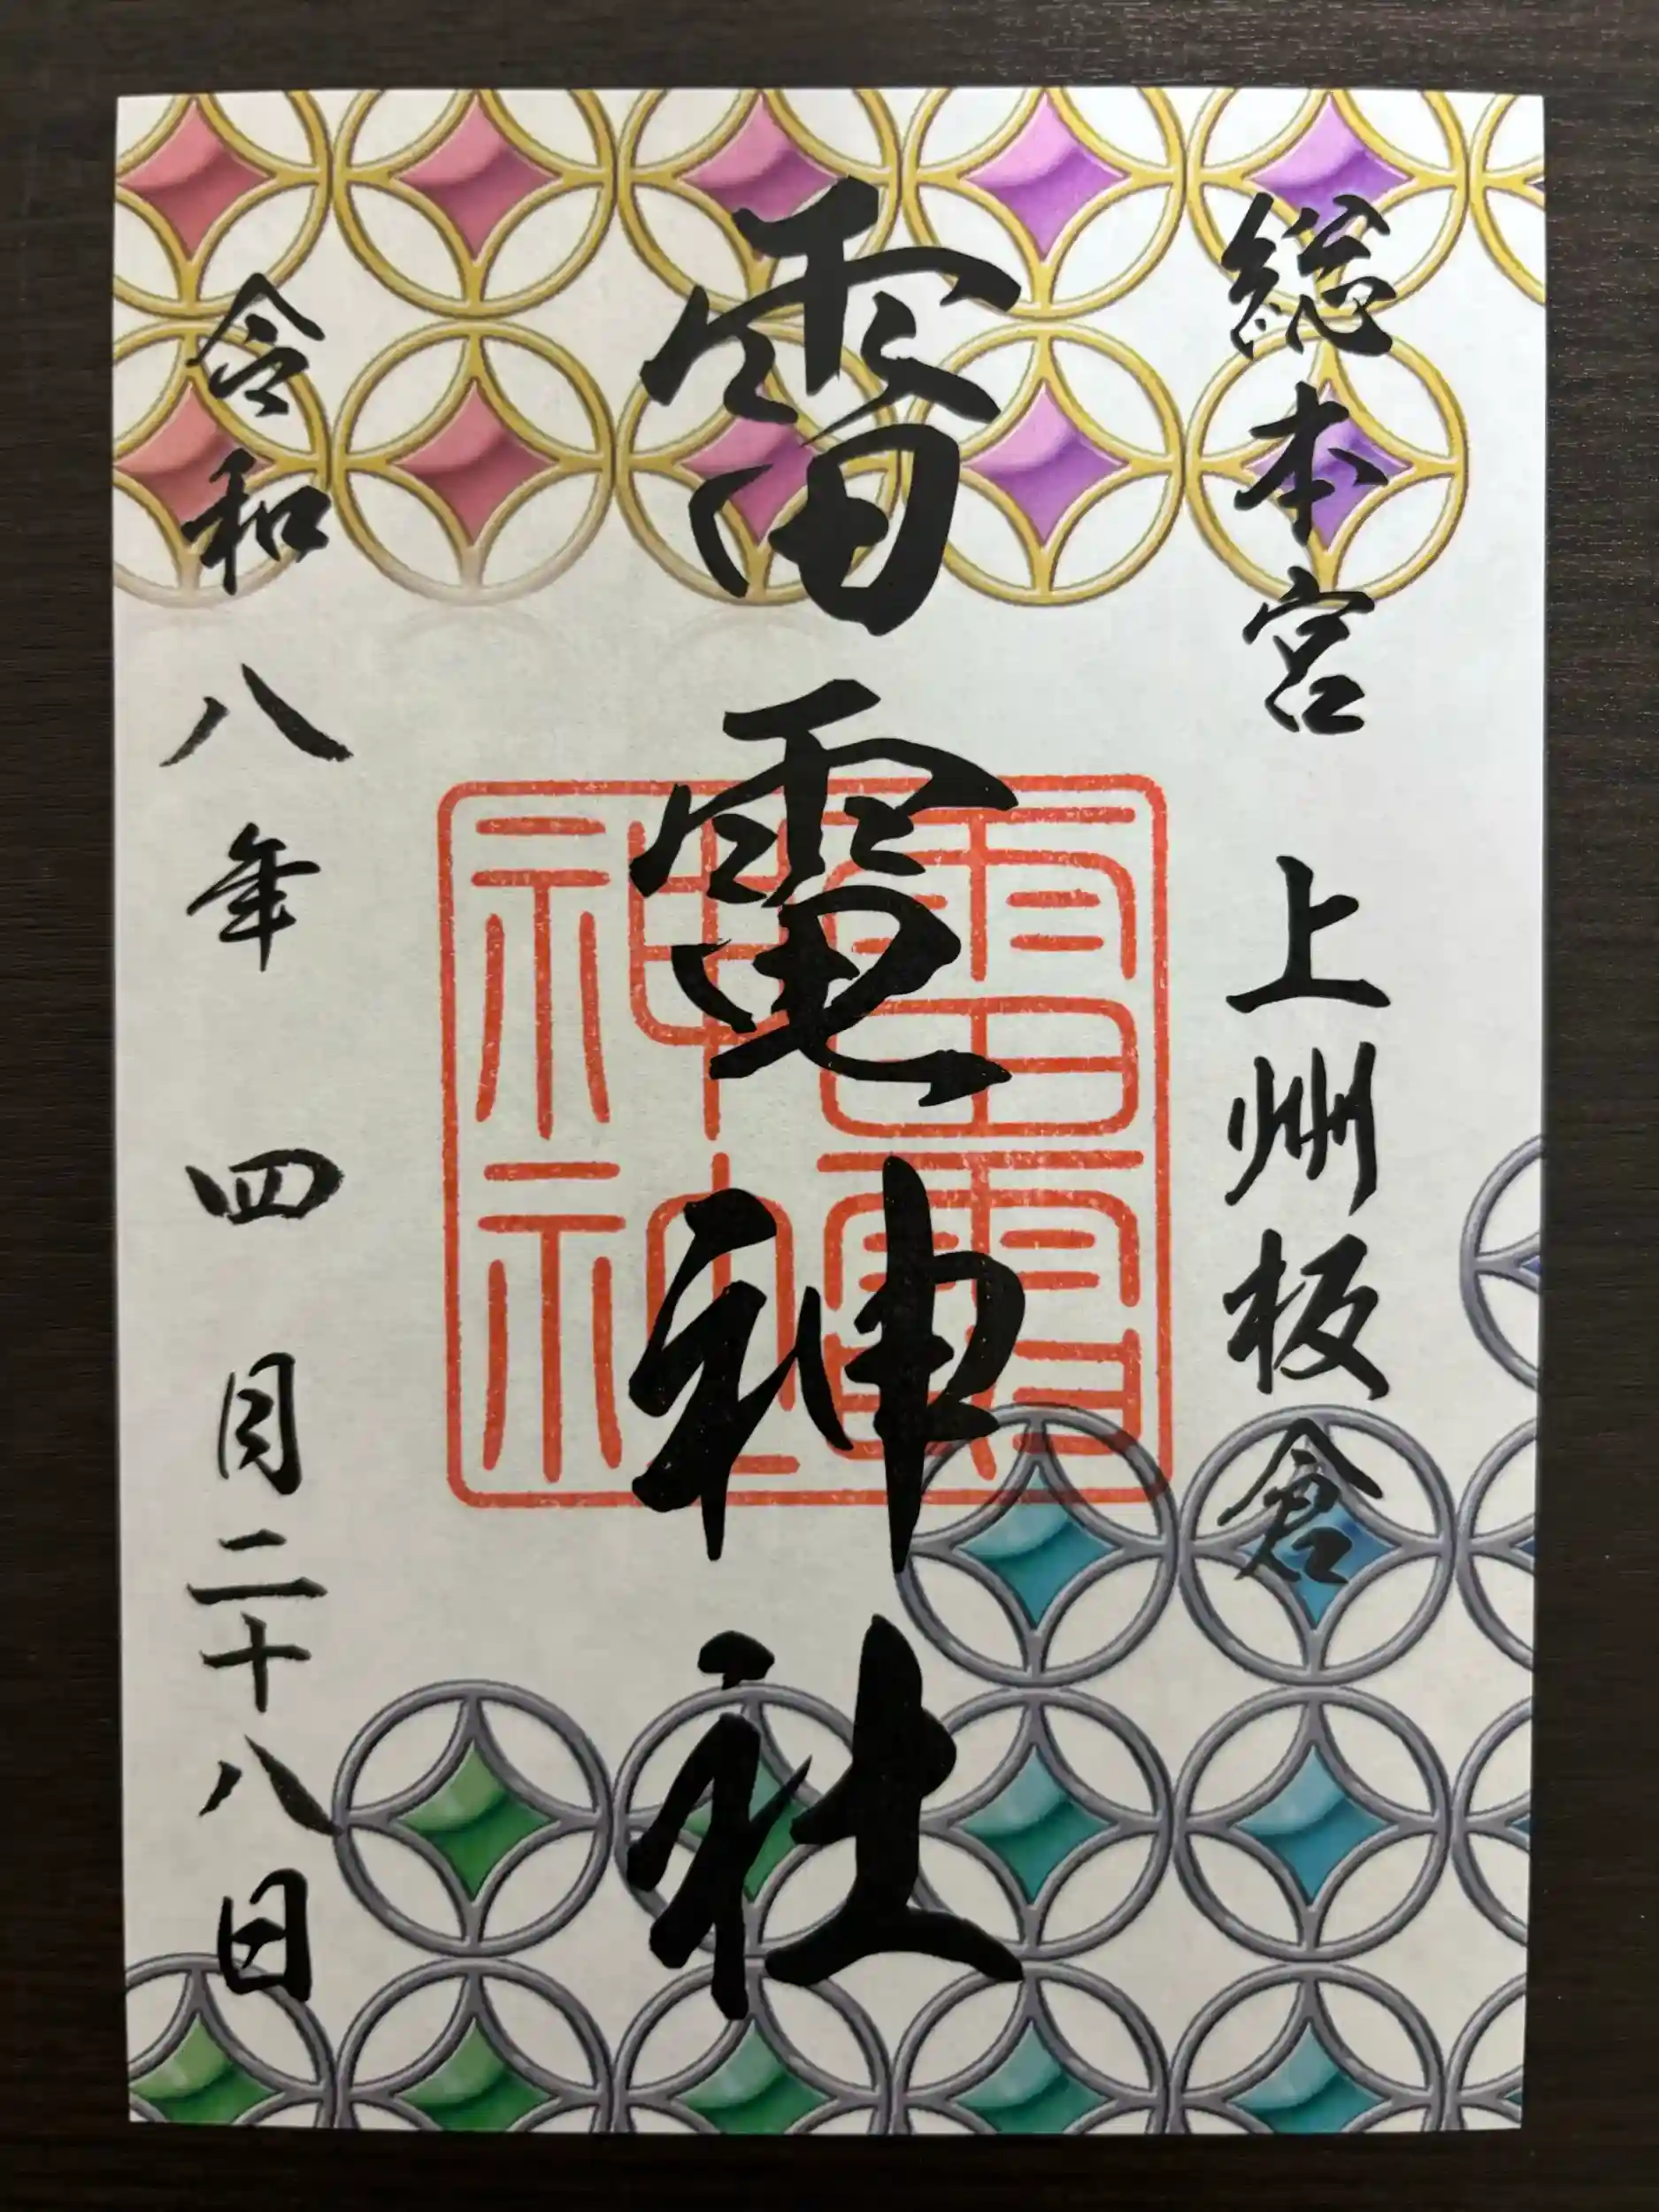 総本宮 上州板倉
雷電神社
雷電神社
令和八年 四月二十八日